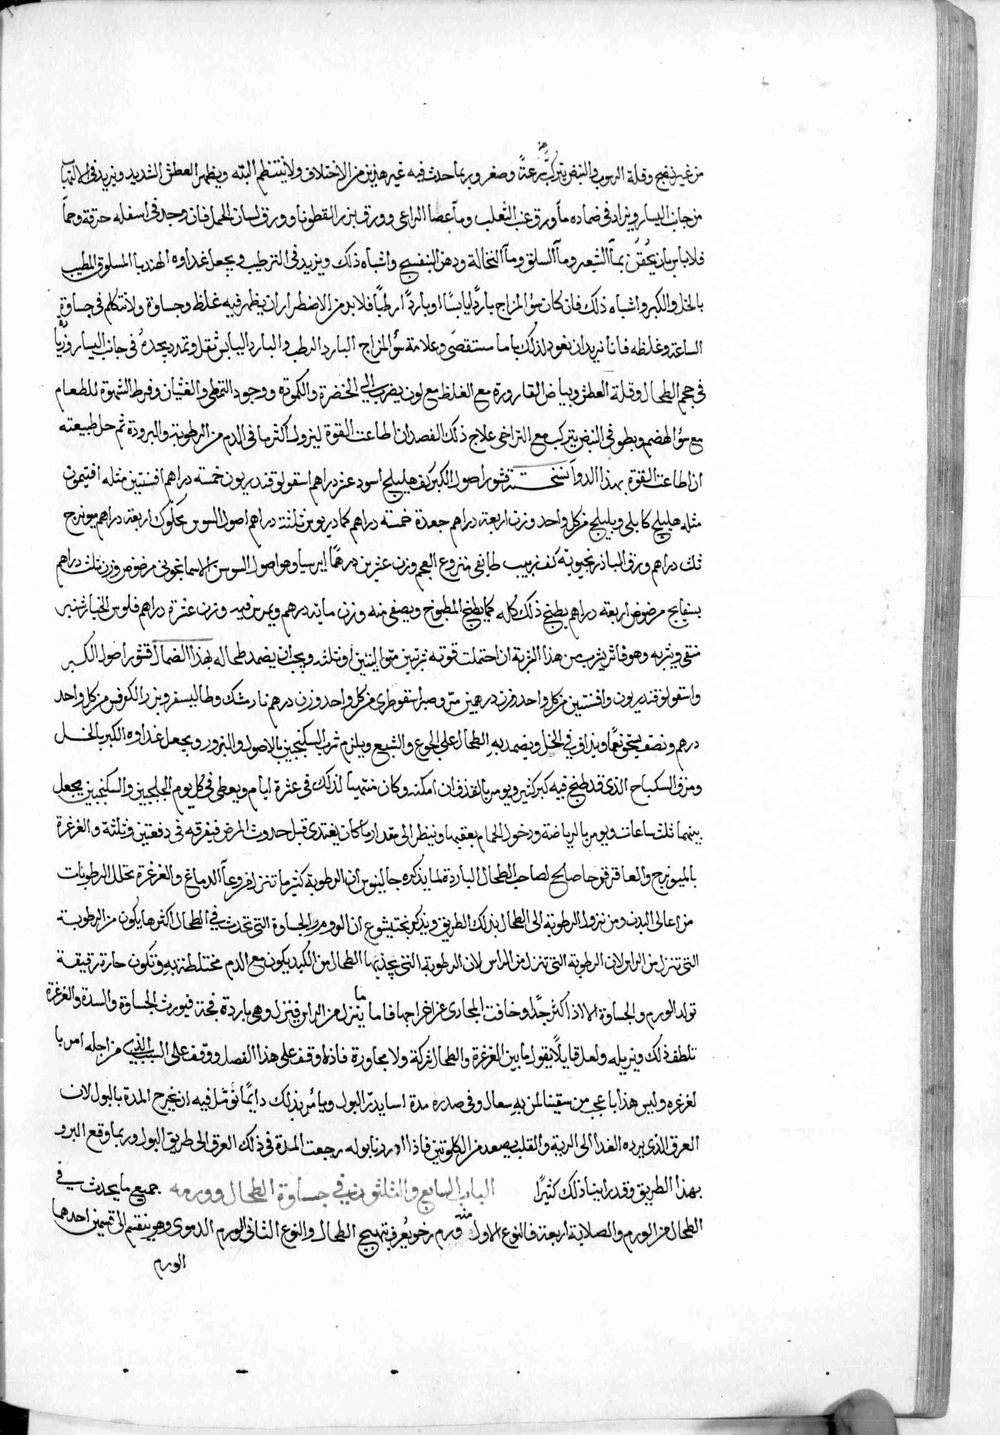 من غير نضج وقلة الرسوب والنبض يتركب سرعة وصغر وربما حدث فيه غير هذين من الاختلاف ولا ينتظم البته ويظهر العطش الشديد ويزيد في الالتهاب
من جانب اليسار ويزاد في ضماده ماورق عنب الثعلب وماء عصا الراعي وورق بزر القطونا وورق لسان الحمل فان وجد في اسفله حرقة وحما
فلا باس بان يحقن بماء الشعير وماء السلق وماء النخالة ودهن البنفسج واشباه ذلك ويزيد في الترطيب ويجعل غداوه الهندبا المسلوق المطيب
بالخل والكبر واشباه ذلك فان كان سؤ المزاج باردا يابسا او باردا رطبا فلا بد من الاضطرار ان يظهر فيه غلظ وجساوة ولا نتكلم في جساوة
الساعة وغلظه فانا نريد ان نعود لذلك باما مستقصى وعلامة سؤ المزاج البارد الرطب والبارد اليابس ثقل وتمدد يجده في جانب اليسار وزيا
في حجم الطحال وقلة العطش وبياض القارورة مع الغلظ مع لون يضرب الي الخضرة والكموتة ووجود التمطي والغثيان وفرط الشهوة للطعام
مع سؤ الهضم وبطو في النبض يتركب مع التراخي علاج ذلك الفصد ان اطاعت القوة لينزول اكثر ما في الدم من الرطوبة والبرودة ثم حل طبيعته
ان اطاعت القوة بهذا الدوا نسخته قشور اصول الكبر كف هليلج اسود عشر دراهم اسقولوقندريون خمسة دراهم افسنتين مثله افتيمون
مثله هليلج كابلي وبليلج من كل واحد وزن اربعة دراهم جعدة خمسة دراهم كمادريوس ثلثة دراهم اصول السوس محكوك اربعة دراهم ميويزج
ثلث دراهم ورق الباذرنجبويه كف زبيب طايفي منزوع العجم وزن عشرين درهما ايرسا وهو اصول السوس الاسمانجوني مرضوض وزن ثلث دراهم
بسفايج مرضوض اربعة دراهم يطبخ ذلك كله كما يطبخ المطبوخ ويصفى منه وزن ماية درهم ويمرس فيه وزن عشرة دراهم فلوس الخيارشنبر
منقى ويشربه وهو فاتر يشرب من هذا الشربة ان احتملت قوته شربتين متواليتين او ثلثه ويجب ان يضمد طحاله بهذا الضماد قشور اصول الكبر
واسقولوقندريون وافسنتين من كل واحد وزن درهمين مر وصبر اسقوطري من كل واحد وزن درهم نارمشك وطاليسفر وبزر الكرفس من كل واحد
درهم ونصف يسحق سحقا ويذاف في الخل ويضمد به الطحال على الجوع والشبع ويلزم شرب السكنجبين بالاصول والبزور ويجعل غداوه الكبر بالخل
ومرق السكباج الذي قد طبخ فيه كبر كثير ويومر بالقذف ان امكنه وكان متهيا لذلك في عشرة ايام ويعطى في كل يوم الجلنجبين والسكنجبين يجعل
بينهما ثلث ساعات ويومر بالرياضة ودخول الحمام بعقبها وينظر الى مقدار ما كان يغتدى قبل حدوث المرض فيفرقه في دفعتين وثلثة والغرغرة
بالميويزج والعاقرقرحا صالح لصاحب الطحال الباردة لما يذكره جالينوس ان الرطوبة كثيرما تنزل من وعا الدماغ والغرغرة تحلل الرطوبات
من اعالي البدن ومن نزول الرطوبة الى الطحال بذلك الطريق ويذكر بختيشوع ان الورم والجساوة التي تحدث في الطحال اكثرها يكون من الرطوبة
التي تنزل من الراس لان الرطوبة التي تنزل من الراس لان الرطوبة التي يجذبها الطحال من الكبد يكون مع الدم مختلطة به وتكون حارة رقيقة
تولد الورم والجساوة الا اذا كثر جدا وضاقت المجاري عن اخراجها فاما ما ينزل من الراس فينزل وهي باردة فجة فيورث الجساوة والسدة والغرغرة
تلطف ذلك وينزيله ولعل قايلا يقول ما بين الغرغرة والطحال شركة ولا مجاورة فاذا وقف على هذا الفصل ووقف على السبب الذي من اجله امر با
لغرغره وليس هذا باعجب من سقينا لمن به سعال وفي صدره مدة اسا يدر البول ويامر بذلك دايما نوثل فيه ان يخرج المدة بالبول لان
العرق الذي يرده الغدا الى الرية والقلب يصعد من الكلوتين فاذا ادررنا بوله رجعت المدة في ذلك العرق الى طريق البول وربما وقع البرو
بهذا الطريق وقد راينا ذلك كثيرا الباب السابع والثلثون في جساوة الطحال وورمه جميع ما يحدث في
الطحال من الورم والصلابة اربعة فالنوع الاول منه ورم رخو يعرف بتهيج الطحال والنوع الثاني الورم الدموي وهو ينقسم الى قسمين احدهما
الورم